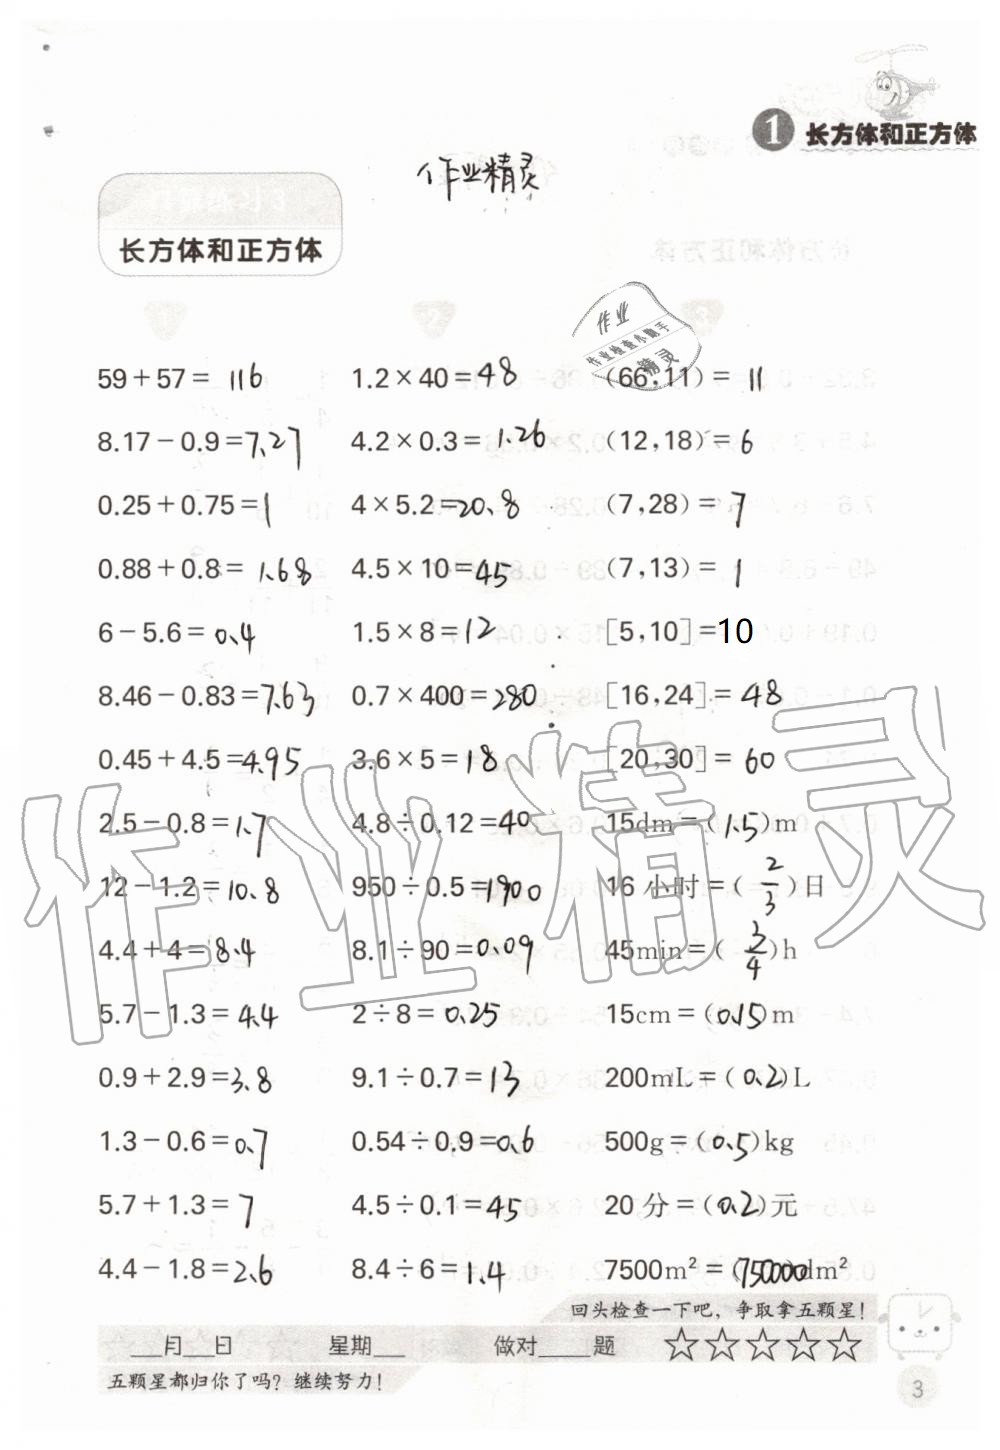 1 长方体和正方体
作业精灵
长方体和正方体
作业
作业检查小助手
精灵
59+57= 116 1.2×40=48 (66,11)= 11
8.17-0.9=7.27 4.2×0.3=1.26 (12,18)=6
0.25+0.75=1 4×5.2=20.8 (7,28)=7
0.88+0.8=1.68 4.5×10=45 (7,13)=1
6-5.6=0.4 1.5×8=12 [5,10]=10
8.46-0.83=7.63 0.7×400=280 [16,24]=48
0.45+4.5=4.95 3.6×5=18 [20,30]=60
2.5-0.8=1.7 4.8÷0.12=40 15dm=(1.5)m
12-1.2=10.8 950÷0.5=1900 16小时=(2/3)日
4.4+4=8.4 8.1÷90=0.09 45min=(3/4)h
5.7-1.3=4.4 2÷8=0.25 15cm=(0.15)m
0.9+2.9=3.8 9.1÷0.7=13 200mL=(0.2)L
1.3-0.6=0.7 0.54÷0.9=0.6 500g=(0.5)kg
5.7+1.3=7 4.5÷0.1=45 20分=(0.2)元
4.4-1.8=2.6 8.4÷6=1.4 7500m²=(750000)dm²
作业精灵
回头检查一下吧，争取拿五颗星！
___月___日 星期___ 做对____题 ☆☆☆☆☆
五颗星都归你了吗？继续努力！
3